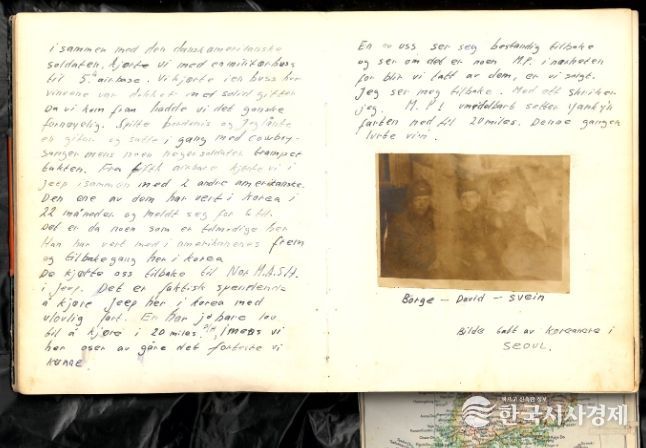 isammen med den danskamerikanske
soldaten, kjørte vi med en militærbuss
til 5th airbase. Vi kjørte i en buss hvor
vinduene var dekket med solid gitter
Da vi kom fram hadde vi det ganske
fornøyelig. Spilte og Jeg lånte
en gitar og satte i gang med cowboy-
sanger mens noen negersoldater trampet
takten. Fra fifth airbase kjørte vi i
jeep isammen med 2 andre amerikanske.
Den ene av dem har vert i Korea i
22 måneder og meldt seg for 6 til.
Det er da noen som er tilmodige her
Han har vert med i amerikanernes frem
og tilbakegang her i Korea
De kjørte oss tilbake til Nor M.A.S.H.
i jeep. Det er faktisk spennende
å kjøre jeep her i Korea med
ulovlig fart. En har jo bare lov
til å kjøre i 20 miles. Imens vi
her oser av gåre det forteste vi
kunne.
En av oss ser seg bestandig tilbake
og ser om det er noen M.P. i nærheten
for blir vi tatt av dem, er vi solgt.
Jeg ser meg tilbake. Med ett skriker
jeg. M.P! umiddelbart setter yankyn
farten ned til 20 miles. Denne gangen
lurte vi'n.
Børge - David - Svein
Bilde tatt av koreanere i
SEOUL.
빠르고 신속한 정보
한국시사경제